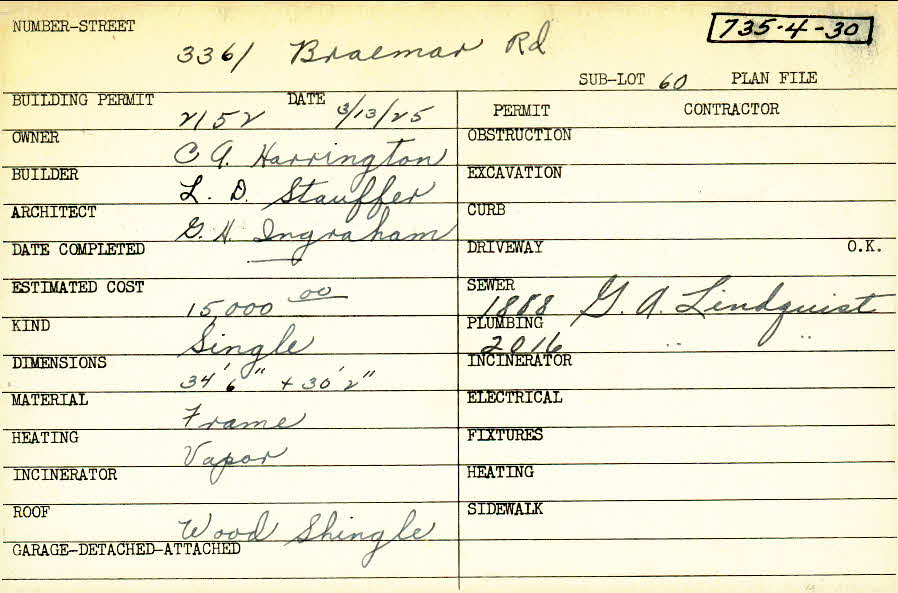 NUMBER-STREET
3361 Braemar Rd
735-4-30
SUB-LOT 60 PLAN FILE
BUILDING PERMIT 2152 DATE 3/13/25
PERMIT CONTRACTOR
OWNER C A. Harrington
OBSTRUCTION
BUILDER L. D. Stauffer
EXCAVATION
ARCHITECT G. H. Ingraham
CURB
DATE COMPLETED
DRIVEWAY O.K.
ESTIMATED COST 15,000 00
SEWER 1888 G. A. Lindquist
KIND Single
PLUMBING 2016 " "
DIMENSIONS 34'6" + 30'2"
INCINERATOR
MATERIAL Frame
ELECTRICAL
HEATING Vapor
FIXTURES
INCINERATOR
HEATING
ROOF Wood Shingle
SIDEWALK
GARAGE-DETACHED-ATTACHED